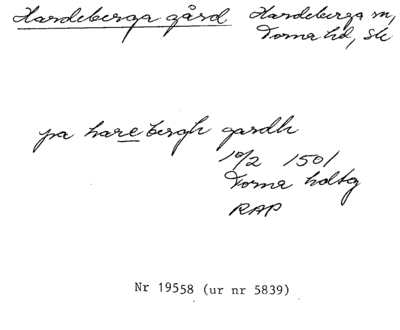 Hardeberga gård Hardeberga sn,
Torna hd, Sk
pa harebergh gardh
10/2 1501
Torna hdtg
RAP
Nr 19558 (ur nr 5839)